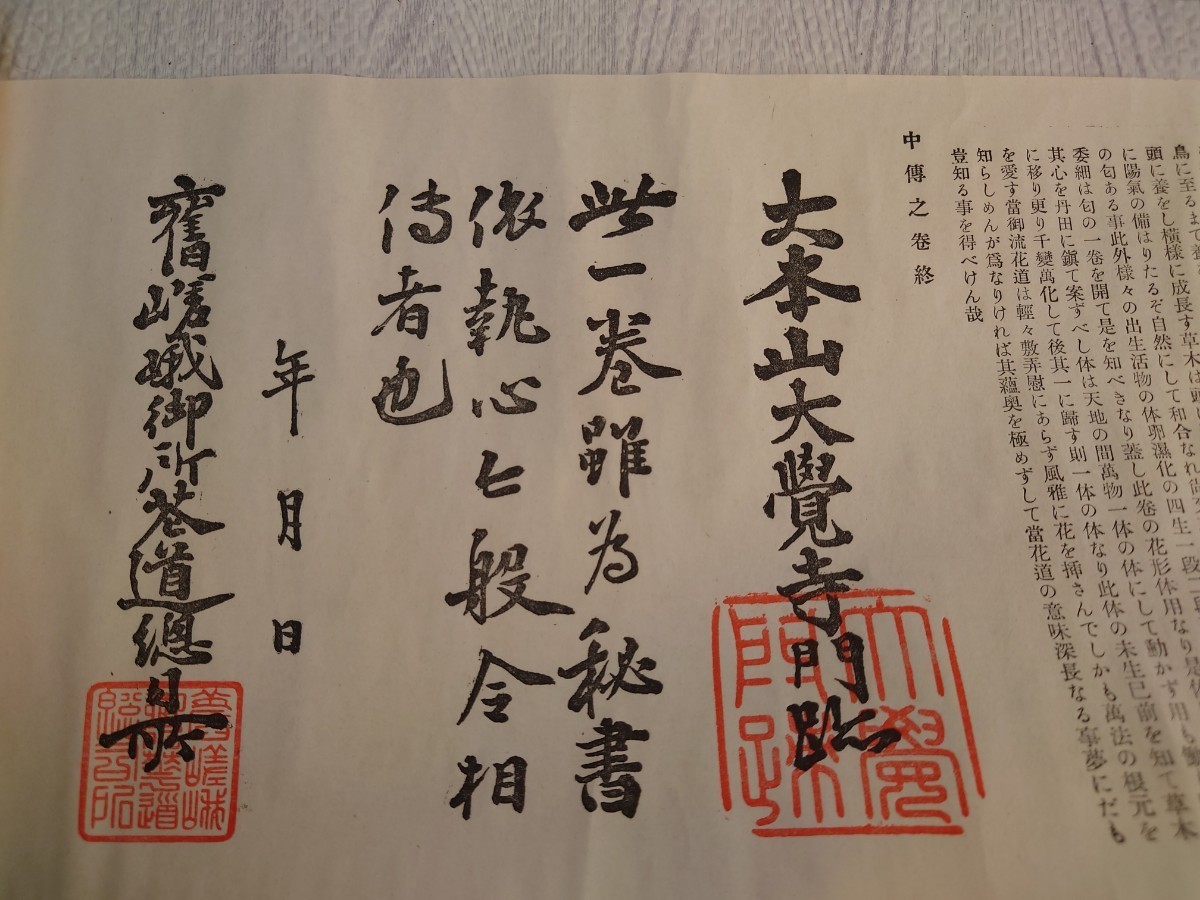 鳥に至るまで養
頭に養をし橫樣に成長す草木は頭
に陽氣の備はりたるぞ自然にして和合なれ
の匂ある事此外樣々の出生活物の体卵濕化の四生一段
委細は匂の一卷を開て是を知べきなり蓋し此卷の花形体用なり
其心を丹田に鎭て案ずべし体は天地の間萬物一体の体にして動かず用も
に移り更り千變萬化して後其一に歸す則一体の体なり此体の未生已前を知て草木
を愛す當御流花道は輕々敷弄慰にあらず風雅に花を揷さんでしかも萬法の根元を
知らしめんが爲なりければ其蘊奧を極めずして當花道の意味深長なる事夢にだも
豈知る事を得べけん哉
中傳之卷終
大本山大覺寺門跡
大覺
門跡
此一卷雖為秘書
依執心 般令相
傳者也
年月日
舊嵯峨御所華道總司所